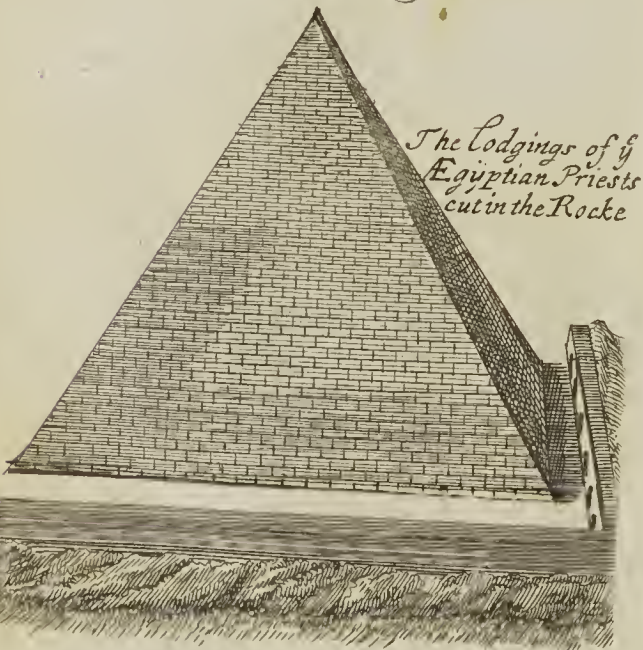 The lodgings of yͤ
Ægÿptian Priests
cut in the Rocke